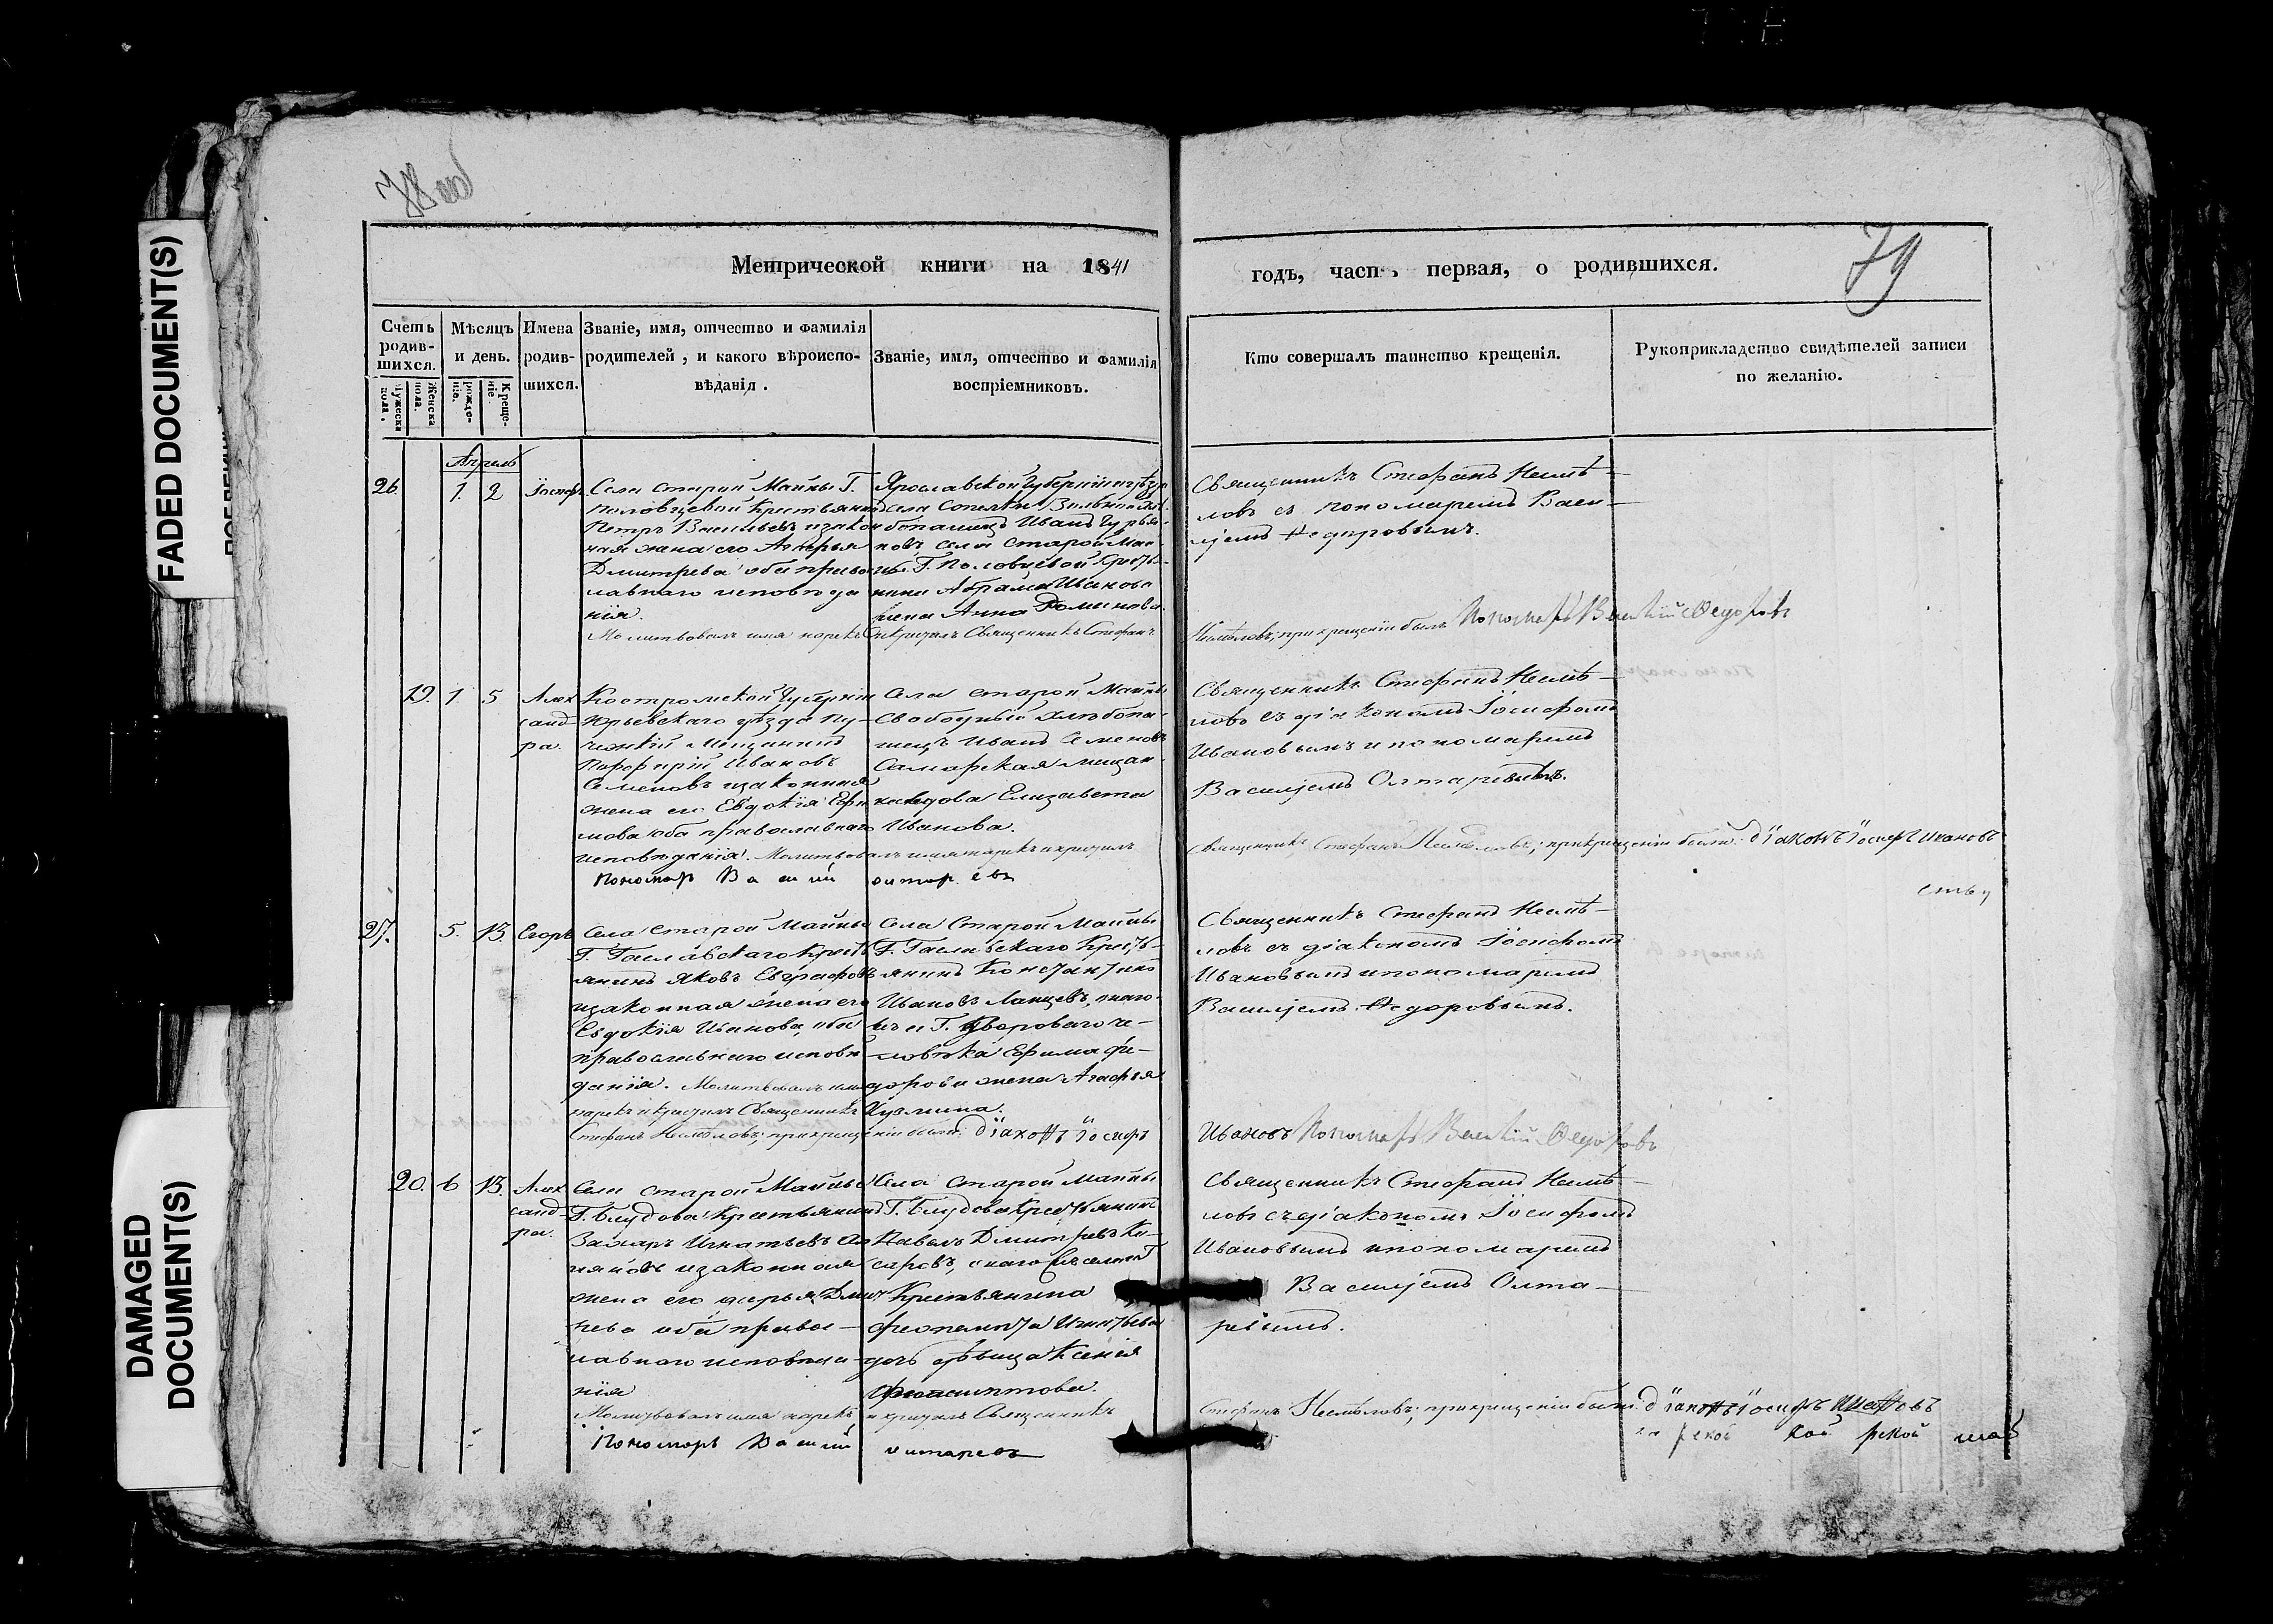 79
FADED DOCUMENT(S)
DAMAGED
DOCUMENT(S)
Метрической книги на 1841
годъ, часть первая, о родившихся.
Счетъ
родив-
шихся.
Мужеска
пола.
Женска
пола.
Мѣсяцъ
и день.
рожде-
нія.
Креще-
нія.
Имена
родив-
шихся.
Званіе, имя, отчество и фамилія
родителей, и какого вѣроиспо-
вѣданія.
Званіе, имя, отчество и фамилія
воспріемниковъ.
Кто совершалъ таинство крещенія.
Рукоприкладство свидѣтелей записи
по желанію.
Апрель
26.
1. 2
Іосифъ
Села старой Майны Г.
Половцевой Крестьянинъ
Петръ Васильевъ изакон
ная жена его
Дмитрева оба правос
лавнаго исповеда
нія.
Ярославской Губерніи
села
Иванъ Гурья-
новъ села старой Май-
ны Г. Половцевой Кресть-
янина Абрама Иванова
жена Анна
Молитвовалъ имя нарекъ и крестилъ Священникъ Стефанъ
Священникъ Стефанъ Несмѣ-
ловъ съ пономаремъ Васи-
ліемъ Федоровымъ.
Несмѣловъ; при крещеніи былъ Пономарь Василій Федоровъ
19. 1 5
Алек
санд
ра.
Костромской Губерніи
Юрьевскаго уѣзда Пу-
чежскій Мещанинъ
Порфирій Ивановъ
Семеновъ изаконная
жена его Евдокія Ефи
мова оба православнаго
исповеданія. Молитвовалъ имя нарекъ и крестилъ
Пономарь Василій Олтаревъ
Села старой Майны
Свободный хлебопа-
шецъ Иванъ Семеновъ
Самарская мещан-
ка вдова Елизавета
Иванова.
Священникъ Стефанъ Несмѣ-
ловъ съ діакономъ Іосифомъ
Ивановымъ и пономаремъ
Василіемъ Олтаревымъ.
Священникъ Стефанъ Несмѣловъ; при крещеніи были: діаконъ Іосифъ Ивановъ
27.
5. 13.
Егоръ
Села старой Майны
Г. Таславскаго Кресть
янинъ Яковъ Евграфовъ
изаконная жена его
Евдокія Иванова, оба
православнаго исповѣ
данія. Молитвовалъ имя
нарекъ и крестилъ Священникъ
Стефанъ Несмѣловъ; при крещеніи были: діаконъ Іосифъ
Села Старой Майны
Г. Таславскаго Кресть-
янинъ Константинъ
Ивановъ Ланцевъ, онаго-
жъ Г. дворового че-
ловѣка Ефима Фе-
дорова жена Агафья
Кузмина.
Священникъ Стефанъ Несмѣ-
ловъ съ діакономъ Іосифомъ
Ивановымъ и пономаремъ
Василіемъ Федоровымъ.
Ивановъ Пономарь Василій Федоровъ
20. 6 13.
Алек
санд-
ра.
Села старой Майны
Г. Блудова Крестьянинъ
Захаръ Игнатьевъ
изаконная
жена его Дарья Дмит
рева оба правос-
лавнаго исповеда
нія
Села старой Майны
Г. Блудова Крестьянинъ
Павелъ Дмитревъ Ки-
саровъ, онаго
Крестьянина
Феопемпта Игнатьева
дочь девица Ксенія
Феопемптова.
Молитвовалъ имя нарекъ и крестилъ Священникъ
Пономарь Василій Олтаревъ
Священникъ Стефанъ Несмѣ-
ловъ съ діакономъ Іосифомъ
Ивановымъ и пономаремъ
Василіемъ Олта-
ревымъ.
Стефанъ Несмѣловъ; при крещеніи были: діаконъ Іосифъ Ивановъ